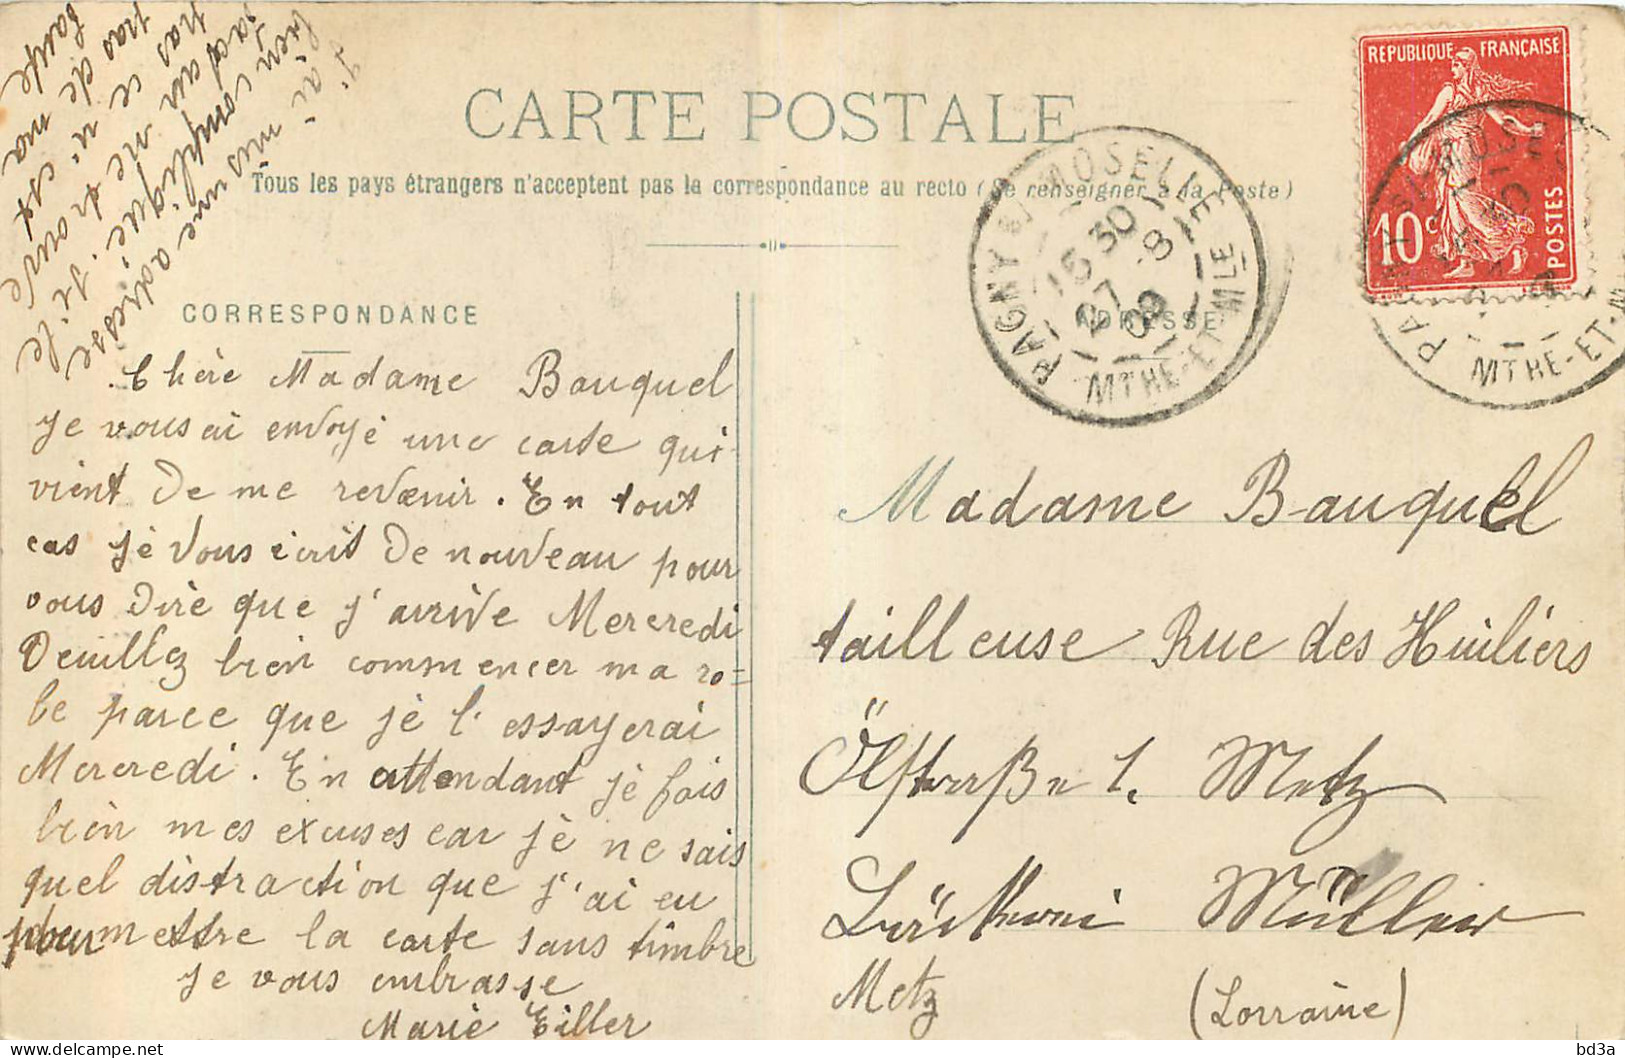 J'ai mis une adresse
bien compliqué. S'ile
facteur ne trouve
pas ce n'est
pas de ma
faute
CARTE POSTALE
Tous les pays étrangers n'acceptent pas la correspondance au recto (Se renseigner à la Poste)
REPUBLIQUE FRANÇAISE
10c POSTES
PAGNY S/ MOSELLE
15 30
27 - 8
09
MTHE-ET-MLE
PAGNY S/ MOSELLE
MTHE-ET-M
CORRESPONDANCE
ADRESSE
Chère Madame Bauquel
Je vous ai envoyé une carte qui
vient De me revenir. En tout
cas je Vous écrit De nouveau pour
vous Dire que j'arrive Mercredi
Veuillez bien commencer ma ro=
be parce que je l'essayerai
Mercredi. En attendant je fais
bien mes excuses car je ne sais
quel distraction que j'ai eu
pour mettre la carte sans timbre
Je vous embrasse
Marie Eiller
Madame Bauquel
tailleuse Rue des Huiliers
Ölstraße n 1. Metz
Bäckerei Müller
Metz (Lorraine)
bd3a